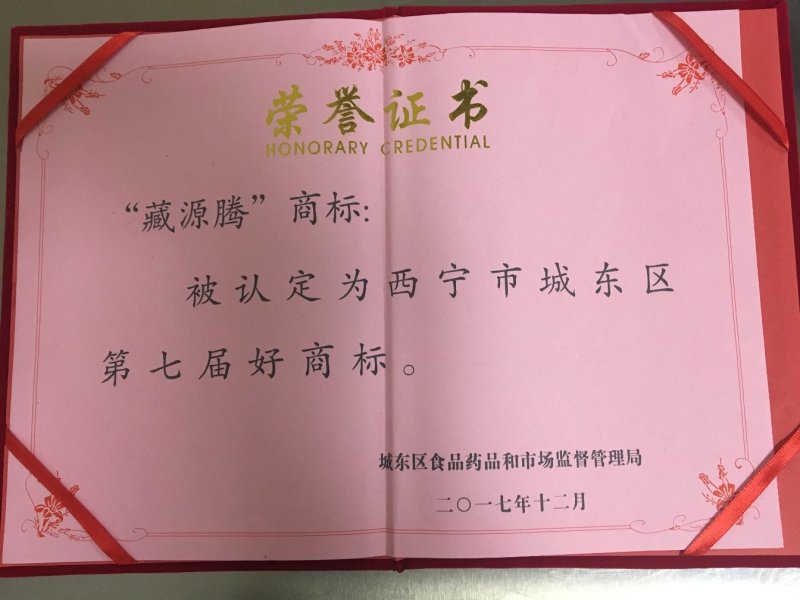 荣誉证书
HONORARY CREDENTIAL
“藏源腾”商标:
被认定为西宁市城东区
第七届好商标。
城东区食品药品和市场监督管理局
二〇一七年十二月